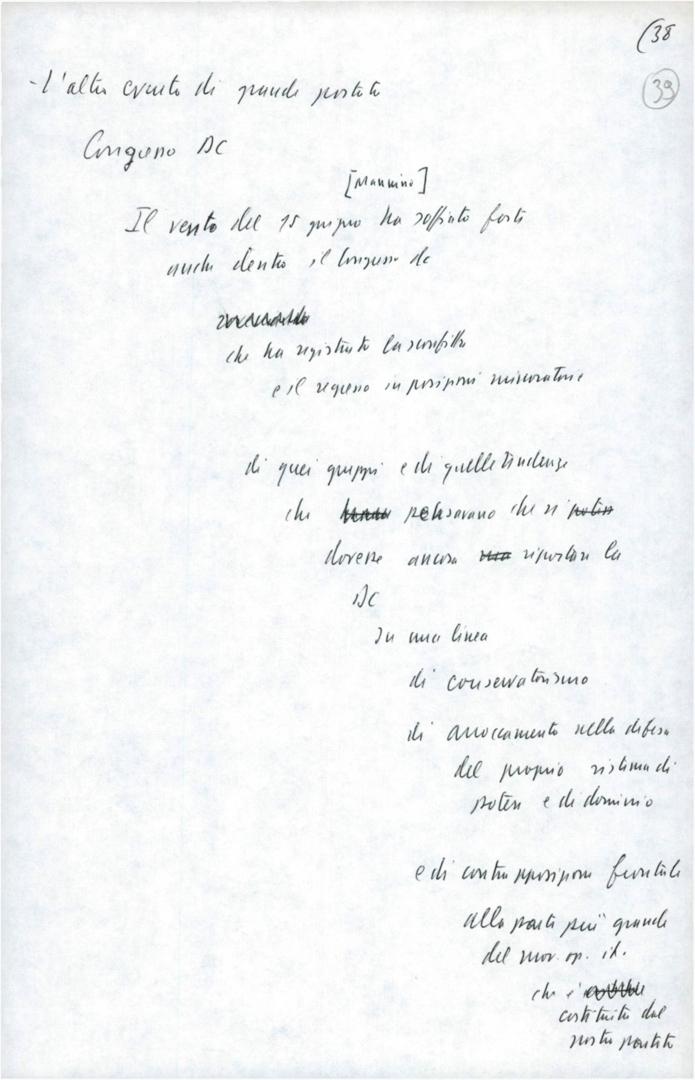 (38
39
- L'altro evento di grande portata
Congresso DC
[Mannino]
Il vento del 15 giugno ha soffiato forte
anche dentro il Congresso dc
che ha registrato la sconfitta
e il regresso in posizioni minoritarie
di quei gruppi e di quelle tendenze
che pensavano che si
dovesse ancora riportare la
DC
in una linea
di conservatorismo
di arroccamento nella difesa
del proprio sistema di
potere e di dominio
e di contrapposizione frontale
alla parte più grande
del mov. op. it.
che è
costituita dal
nostro partito